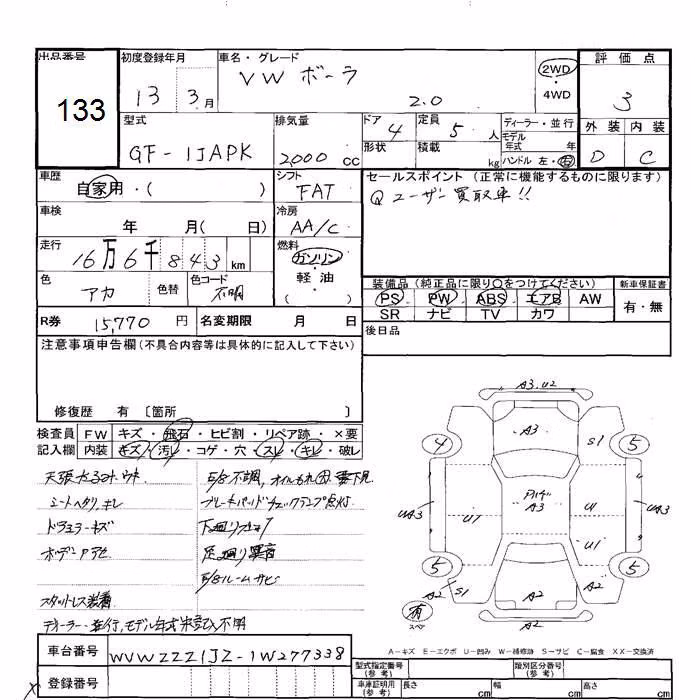 出品番号 初度登録年月 車名・グレード 評価点
133
13 3月 VW ボーラ 2.0 2WD・4WD 3
外装 内装
D C
型式 排気量 ドア 4 定員 5人 ディーラー・並行
形状 積載 kg モデル年式 年
GF-1JAPK 2,000 cc ハンドル 左・右
車歴 シフト セールスポイント (正常に機能するものに限ります)
自家用・( ) FAT Qユーザー買取車!!
車検 冷房
年 月( 日) AA/C
走行 燃料
16万6千843km ガソリン
軽油
( )
色 アカ 色替 色コード 不明
装備品 (純正品に限り〇をつけてください) 新車保証書
PS PW ABS エアB AW 有・無
SR ナビ TV カワ
R券 15,770円 名変期限 月 日
後日品
注意事項申告欄(不具合内容等は具体的に記入して下さい)
修復歴 有 〔箇所 〕
検査員 FW キズ・飛石・ヒビ割・リペア跡・×要
記入欄 内装 キズ・汚レ・コゲ・穴・スレ・キレ・破レ
天張たるみ、ウキ
シートヘタリ、キレ
ボデーアセ
スタットレス装着
ディーラー・並行、モデル年式未記入不明
E/g不調、オイルもれ
ブレーキパッドチェックランプ点灯
下廻りサビ
足廻り異音
E/gルームサビ
A3.U2
4 A3 S1 5
UA3 U1 A3 U1 UA3
U1
5 5
A2 S1 A2 A2
有
スペア A2
A－キズ E－エクボ U－凹み W－補修跡 S－サビ C－腐食 XX－交換済
車台番号 WVWZZZ1JZ-1W277338
登録番号
型式指定番号(参考) 類別区分番号(参考)
車庫証明用(参考) 長さ cm 幅 cm 高さ cm